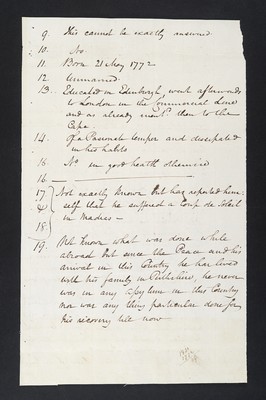 9. This cannot be exactly answered
10. No
11. Born 21 May 1772
12. Unmarried
13. Educated in Edinburgh, went afterwards
to London in the Commercial line
and as already ment.d then to the
Cape
14. Of a Passionate temper and dissipated
in his habits
15. No in good health otherwise
16.
17 Not exactly known but has reported him-
& self that he suffered a Coup de Soleil
18. in Madras -
19. Not known what was done while
abroad but since the Peace and his
arrival in this Country he has lived
with his family in Perthshire, he never
was in any Asylum in this Country
nor was any thing particular done for
his recovery till now